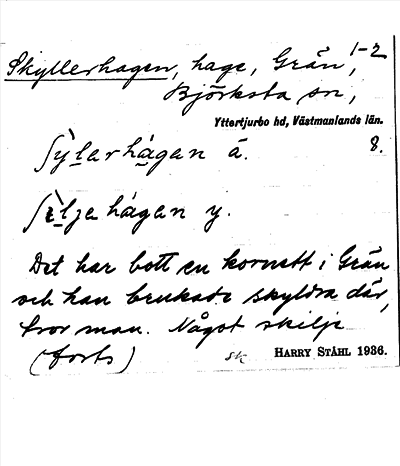 Skyllerhagen, hage, Grän, 1-2
Björksta sn,
Yttertjurbo hd, Västmanlands län.
ʃỳlerhàgen ä. 8.
ʃìlje hàgen y.
Det har bott en kornett i Grän
och han brukade skyldra där,
tror man. Något skilje
(forts)
sk HARRY STÅHL 1936.